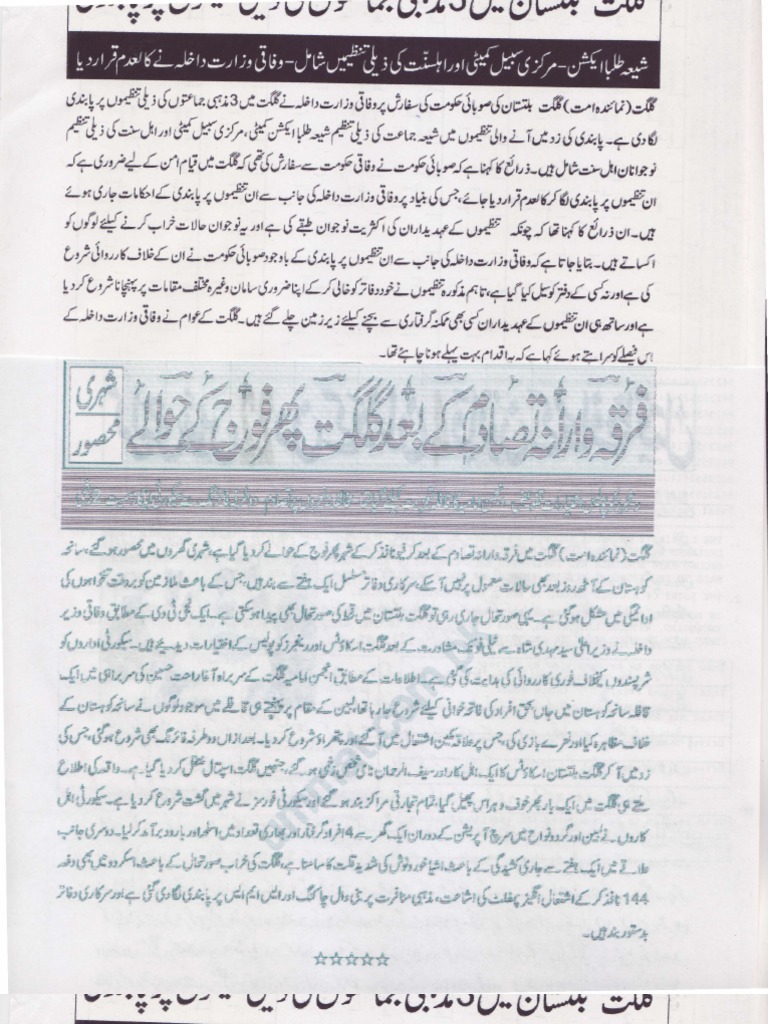 گلگت بلتستان میں 3 مذہبی جماعتوں کی ذیلی تنظیموں پر پابندی
شیعہ طلبا ایکشن - مرکزی سبیل کمیٹی اور اہلسنّت کی ذیلی تنظیمیں شامل - وفاقی وزارت داخلہ نے کالعدم قرار دیا
گلگت (نمائندہ امت) گلگت بلتستان کی صوبائی حکومت کی سفارش پر وفاقی وزارت داخلہ نے گلگت میں 3 مذہبی جماعتوں کی ذیلی تنظیموں پر پابندی
لگا دی ہے۔ پابندی کی زد میں آنے والی تنظیموں میں شیعہ جماعت کی ذیلی تنظیم شیعہ طلبا ایکشن کمیٹی، مرکزی سبیل کمیٹی اور اہل سنت کی ذیلی تنظیم
نوجوانان اہل سنت شامل ہیں۔ ذرائع کا کہنا ہے کہ صوبائی حکومت نے وفاقی حکومت سے سفارش کی تھی کہ گلگت میں قیام امن کے لیے ضروری ہے کہ
ان تنظیموں پر پابندی لگا کر کالعدم قرار دیا جائے، جس کی بنیاد پر وفاقی وزارت داخلہ کی جانب سے ان تنظیموں پر پابندی کے احکامات جاری ہوئے
ہیں۔ ان ذرائع کا کہنا تھا کہ چونکہ تنظیموں کے عہدیداران کی اکثریت نوجوان طبقے کی ہے اور یہ نوجوان حالات خراب کرنے کیلئے لوگوں کو
اکساتے ہیں۔ بتایا جاتا ہے کہ وفاقی وزارت داخلہ کی جانب سے ان تنظیموں پر پابندی کے باوجود صوبائی حکومت نے ان کے خلاف کارروائی شروع
کی ہے اور نہ کسی کے دفتر کو سیل کیا گیا ہے، تاہم مذکورہ تنظیموں نے خود دفاتر کو خالی کر کے اپنا ضروری سامان وغیرہ مختلف مقامات پر پہنچانا شروع کر دیا
ہے اور ساتھ ہی ان تنظیموں کے عہدیداران کسی بھی ممکنہ گرفتاری سے بچنے کیلئے زیر زمین چلے گئے ہیں۔ گلگت کے عوام نے وفاقی وزارت داخلہ کے
اس فیصلے کو سراہتے ہوئے کہا ہے کہ یہ اقدام بہت پہلے ہونا چاہئے تھا۔
فرقہ وارانہ تصادم کے بعد گلگت پھر فوج کے حوالے
شہری محصور
گلگت (نمائندہ امت) گلگت میں فرقہ وارانہ تصادم کے بعد کرفیو نافذ کر کے شہر پھر فوج کے حوالے کر دیا گیا ہے، شہری گھروں میں محصور ہو گئے، سانحہ
کوہستان کے آٹھ روز بعد بھی حالات معمول پر نہیں آ سکے، سرکاری دفاتر مسلسل ایک ہفتے سے بند ہیں، جس کے باعث ملازمین کو بروقت تنخواہوں کی
ادائیگی میں مشکل ہو گئی ہے۔ یہی صورتحال جاری رہی تو گلگت بلتستان میں قحط کی صورتحال بھی پیدا ہو سکتی ہے۔ ایک نجی ٹی وی کے مطابق وفاقی وزیر
داخلہ نے وزیر اعلیٰ سید مہدی شاہ سے ٹیلی فونک مشاورت کے بعد گلگت اسکاؤٹس اور رینجرز کو پولیس کے اختیارات دیدیئے ہیں۔ سیکورٹی اداروں کو
شرپسندوں کیخلاف فوری کارروائی کی ہدایت کی گئی ہے۔ اطلاعات کے مطابق انجمن امامیہ گلگت کے سربراہ آغا راحت حسین کی سربراہی میں ایک
قافلہ سانحہ کوہستان میں جاں بحق افراد کی فاتحہ خوانی کیلئے شروع جا رہا تھا، لبین کے مقام پر پہنچتے ہی قافلے میں موجود لوگوں نے سانحہ کوہستان کے
خلاف مظاہرہ کیا اور نعرے بازی کی، جس پر علاقہ مکین اشتعال میں آ گئے اور پتھراؤ شروع کر دیا۔ بعد ازاں دو طرفہ فائرنگ بھی شروع ہو گئی، جس کی
زد میں آ کر گلگت بلتستان اسکاؤٹس کا ایک اہل کار اور سیف الرحمان نامی شخص زخمی ہو گئے، جنہیں گلگت اسپتال منتقل کر دیا گیا ہے۔ واقعہ کی اطلاع
ملتے ہی گلگت میں ایک بار پھر خوف و ہراس پھیل گیا، تمام تجارتی مراکز بند ہو گئے اور سیکورٹی فورسز نے شہر میں گشت شروع کر دیا ہے۔ سیکورٹی اہل
کاروں نے لبین اور گرد و نواح میں سرچ آپریشن کے دوران ایک گھر سے 4 افراد گرفتار اور بھاری تعداد میں اسلحہ اور بارود برآمد کر لیا۔ دوسری جانب
علاقے میں ایک ہفتے سے جاری کشیدگی کے باعث اشیا خوردونوش کی شدید قلت کا سامنا ہے، گلگت کی خراب صورتحال کے باعث اسکردو میں بھی دفعہ
144 نافذ کر کے اشتعال انگیز پمفلٹ کی اشاعت، مذہبی منافرت پر مبنی وال چاکنگ اور ایس ایم ایس پر پابندی لگا دی گئی ہے اور سرکاری دفاتر
بدستور بند ہیں۔
☆☆☆☆☆
گلگت بلتستان میں 3 مذہبی جماعتوں کی ذیلی تنظیموں پر پابندی